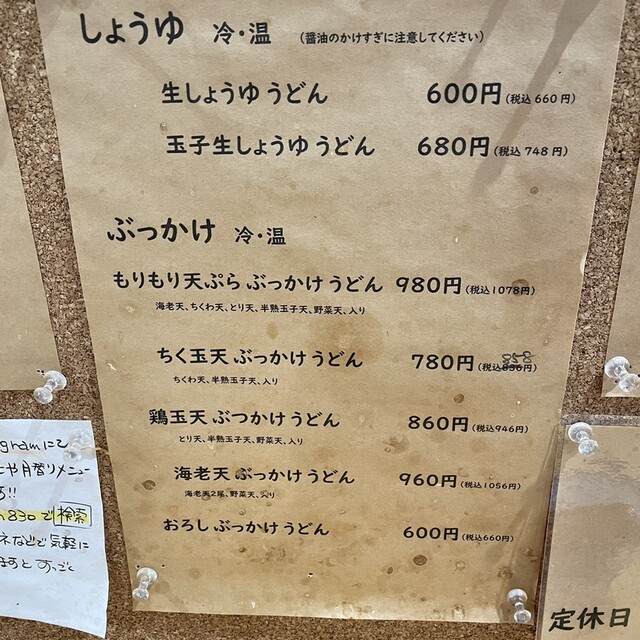 しょうゆ 冷・温 (醤油のかけすぎに注意してください)
生しょうゆうどん 600円(税込 660 円)
玉子生しょうゆうどん 680円(税込 748 円)
ぶっかけ 冷・温
もりもり天ぷら ぶっかけうどん 980円(税込1078円)
海老天、ちくわ天、とり天、半熟玉子天、野菜天、入り
ちく玉天 ぶっかけうどん 780円(税込836円) 858
ちくわ天、半熟玉子天、入り
鶏玉天 ぶつかけうどん 860円(税込946円)
とり天、半熟玉子天、野菜天、入り
海老天 ぶっかけうどん 960円(税込1056円)
海老天2尾、野菜天、入り
おろし ぶっかけうどん 600円(税込660円)
gramにて
や月替りメニュー
!!
830で検索
ネなどで気軽に
ますと すっごく
定休日